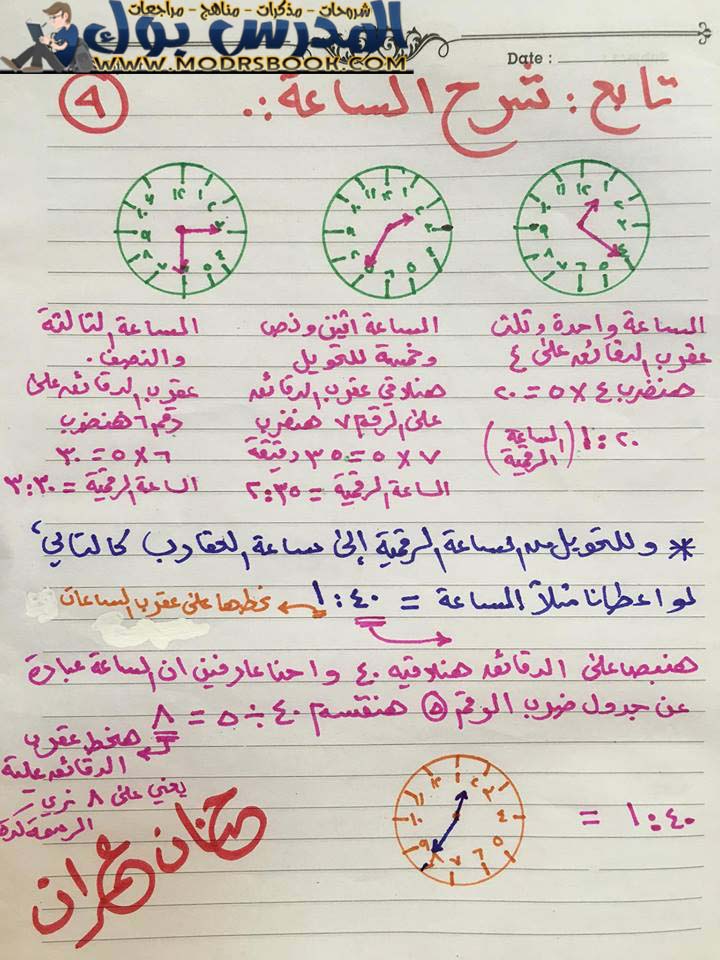 شروحات - مذكرات - مناهج - مراجعات
المدرس بوك
WWW.MODRSBOOK.COM
Date :
تابع : شرح الساعة :.
٩
١٢ ١ ٢ ٣ ٤ ٥ ٦ ٧ ٨ ٩ ١٠ ١١
الساعة واحدة وثلث
عقرب الدقائق على ٤
هنضرب ٤ × ٥ = ٢٠
١:٢٠ (الساعة الرقمية)
الساعة اثنين ونص
وخمسة للتحويل
هنلاقي عقرب الدقائق
على الرقم ٧ هنضرب
٧ × ٥ = ٣٥ دقيقة
الساعة الرقمية = ٢:٣٥
الساعة الثالثة
والنصف .
عقرب الدقائق على
رقم ٦ هنضرب
٦ × ٥ = ٣٠
الساعة الرقمية = ٣:٣٠
* وللتحويل من الساعة الرقمية إلى ساعة العقارب كالتالي ،
لو اعطانا مثلاً الساعة = ١:٤٠ نحطها على عقرب الساعات
هنبص على الدقائق هنلاقيه ٤٠ واحنا عارفين ان الساعة عبارة
عن جدول ضرب الرقم ٥ هنقسم ٤٠ ÷ ٥ = ٨
هنحط عقرب
الدقائق عليه
يعني على ٨ زي
الرسمة كدة
١:٤٠ =
حنان عمران